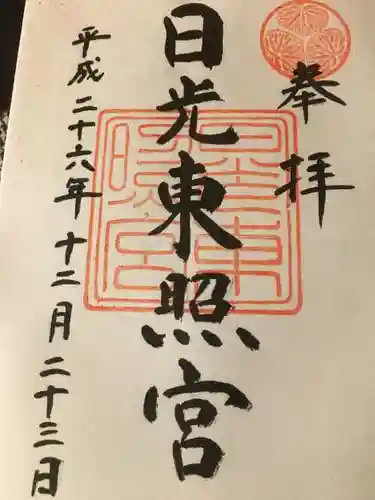 奉拝
日光東照宮
平成二十六年十二月二十三日